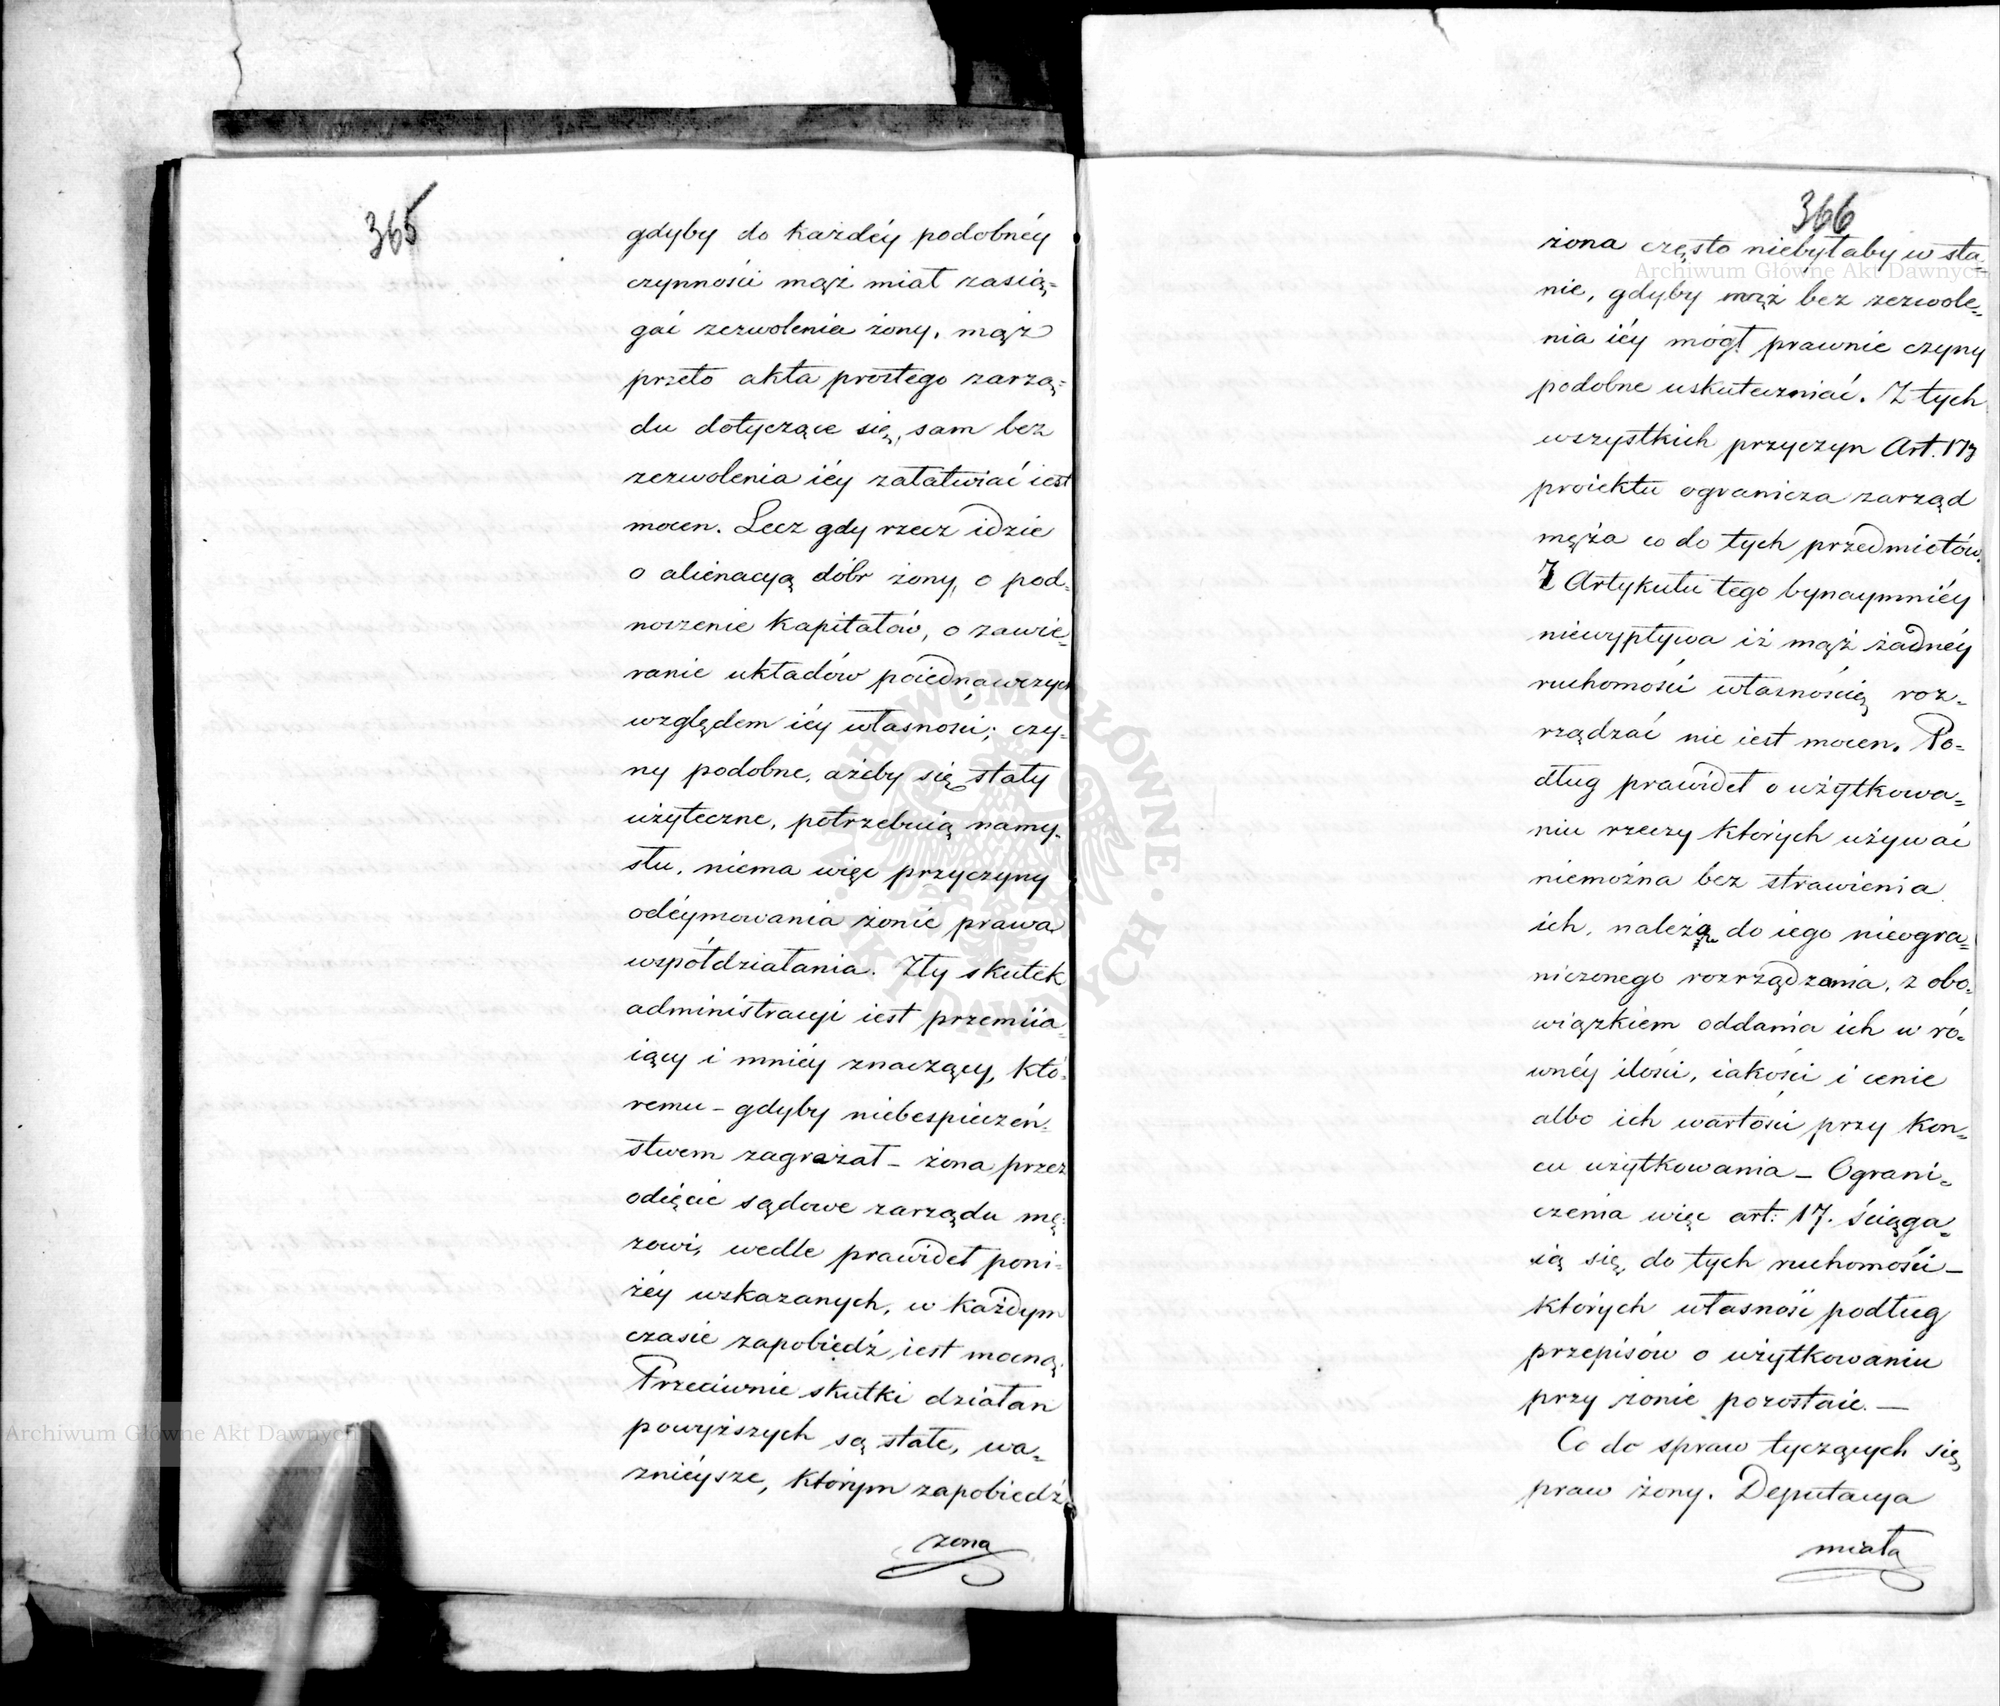 365
gdyby do każdéy podobnéy
czynności mąż miał zasią,=
gać zezwolenia żony, mąż
przeto akta prostego zarzą,=
du dotyczące się, sam bez
zezwolenia iéy załatwiać iest
mocen. Lecz gdy rzecz idzie
o alienacyą dóbr żony, o pod=
noszenie kapitałów, o zawie=
ranie układów poiednawczych
względem iéy własności; czy=
ny podobne, ażeby się stały
użyteczne, potrzebuią namy=
słu, niema więc przyczyny
odéymowania żonie prawa
współdziałania. Zły skutek
administracyi iest przemiia=
iący i mniéy znaczący, któ=
remu – gdyby niebespieczeń=
stwem zagrażał – żona przez
odięcie sądowe zarządu mę=
żowi, wedle prawideł poni=
żéy wskazanych, w każdym
czasie zapobiedź iest mocną.
Przeciwnie skutki działań
powyższych są stałe, wa=
żniéysze, którym zapobiedź
żona
366
żona często niebyłaby w sta=
nie, gdyby mąż bez zezwole=
nia iéy mógł prawnie czyny
podobne uskuteczniać. Z tych
wszystkich przyczyn Art. 17
proiektu ogranicza zarząd
męża co do tych przedmiotów.
Z Artykułu tego bynaymniéy
niewypływa iż mąż żadnéy
ruchomości własnością roz=
rządzać nie iest mocen. Po=
dług prawideł o użytkowa=
niu rzeczy których używać
niemożna bez strawienia
ich, należą do iego nieogra=
niczonego rozrządzania, z obo=
wiązkiem oddania ich w ró=
wnéy ilości, iakości i cenie
albo ich wartości przy koń=
cu użytkowania – Ograni=
czenia więc art: 17. ściąga=
ią się do tych ruchomości –
których własność podług
przepisów o użytkowaniu
przy żonie pozostaie. –
Co do spraw tyczących się
praw żony. Deputacya
miała
Archiwum Główne Akt Dawnych
Archiwum Główne Akt Dawnych
ARCHIWUM GŁÓWNE AKT DAWNYCH